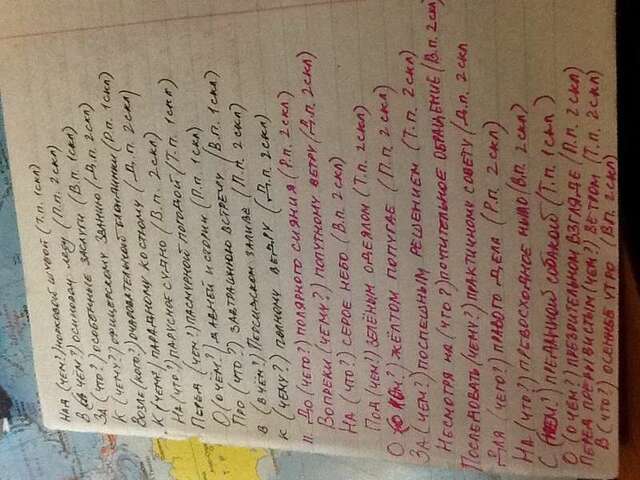 НАД (ЧЕМ?) НОРКОВОЙ ШУБОЙ (Т.П. 1СКЛ)
В (В ЧЁМ?) ОСИНОВОМ ЛЕДУ (П.П. 2СКЛ)
ЗА (ЧТО?) ОСОБЕННЫЕ ЗАСЛУГИ (В.П. 1СКЛ)
К (ЧЕМУ?) ОФИЦЕРСКОМУ ЗВАНИЮ (Д.П. 2СКЛ)
ВОЗЛЕ (КОГО?) ОЧАРОВАТЕЛЬНОЙ БЛОНДИНКИ (Р.П. 1СКЛ)
К (ЧЕМУ?) ПАРАДНОМУ КОСТЮМУ (Д.П. 2СКЛ)
НА (ЧТО?) ПАРУСНОЕ СУДНО (В.П. 2СКЛ)
ПЕРЕД (ЧЕМ?) ПАСМУРНОЙ ПОГОДОЙ (Т.П. 1СКЛ)
О (О ЧЁМ?) ДАВНЕЙ ИСТОРИИ (П.П. 1СКЛ)
ПРО (ЧТО?) ЗАВТРАШНЮЮ ВСТРЕЧУ (В.П. 1СКЛ)
В (В ЧЁМ?) ПЕРСИДСКОМ ЗАЛИВЕ (П.П. 2СКЛ)
К (ЧЕМУ?) ПОЛНОМУ ВЕДРУ (Д.П. 2СКЛ)
II. ДО (ЧЕГО?) ПОЛЯРНОГО СИЯНИЯ (Р.П. 2СКЛ)
ВОПРЕКИ (ЧЕМУ?) ПОПУТНОМУ ВЕТРУ (Д.П. 2СКЛ)
НА (ЧТО?) СЕРОЕ НЕБО (В.П. 2СКЛ)
ПОД (ЧЕМ?) ЗЕЛЁНЫМ ОДЕЯЛОМ (Т.П. 2СКЛ)
О (О КОМ?) ЖЁЛТОМ ПОПУГАЕ (П.П. 2СКЛ)
ЗА (ЧЕМ?) ПОСПЕШНЫМ РЕШЕНИЕМ (Т.П. 2СКЛ)
НЕСМОТРЯ НА (ЧТО?) ПОЧТИТЕЛЬНОЕ ОБРАЩЕНИЕ (В.П. 2СКЛ)
ПОСЛЕДОВАТЬ (ЧЕМУ?) ПРАКТИЧНОМУ СОВЕТУ (Д.П. 2СКЛ
ДЛЯ (ЧЕГО?) ПРАВОГО ДЕЛА (Р.П. 2СКЛ)
НА (ЧТО?) ПРЕВОСХОДНОЕ МЫЛО (В.П. 2СКЛ)
С (КЕМ?) ПРЕДАННОЙ СОБАКОЙ (Т.П. 1СКЛ)
О (О ЧЁМ?) ПРЕЗРИТЕЛЬНОМ ВЗГЛЯДЕ (П.П. 2СКЛ)
ПЕРЕД ПРЕРЫВИСТЫМ (ЧЕМ?) ВЕТРОМ (Т.П. 2СКЛ)
В (ЧТО?) ОСЕННЕЕ УТРО (В.П. 2СКЛ)